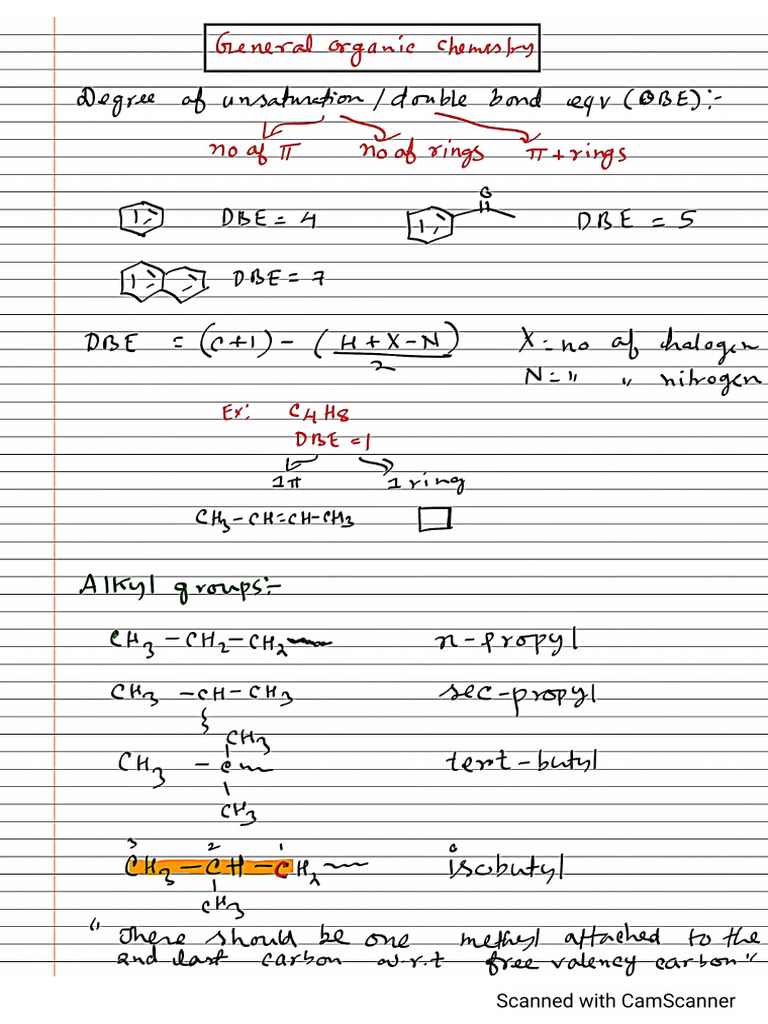 General organic chemistry
Degree of unsaturation / double bond eqv (DBE):-
no of π no of rings π + rings
DBE = 4 O DBE = 5
DBE = 7
DBE = (C+1) - (H+X-N)/2 X = no of halogen
N = " " nitrogen
Ex: C4H8
DBE = 1
1π 1 ring
CH3-CH=CH-CH3
Alkyl groups:-
CH3-CH2-CH2 n-propyl
CH3-CH-CH3 sec-propyl
CH3
CH3 - C tert-butyl
CH3
3 2 1
CH3-CH-CH2 isobutyl
CH3
"There should be one methyl attached to the
2nd last carbon w.r.t free valency carbon"
Scanned with CamScanner